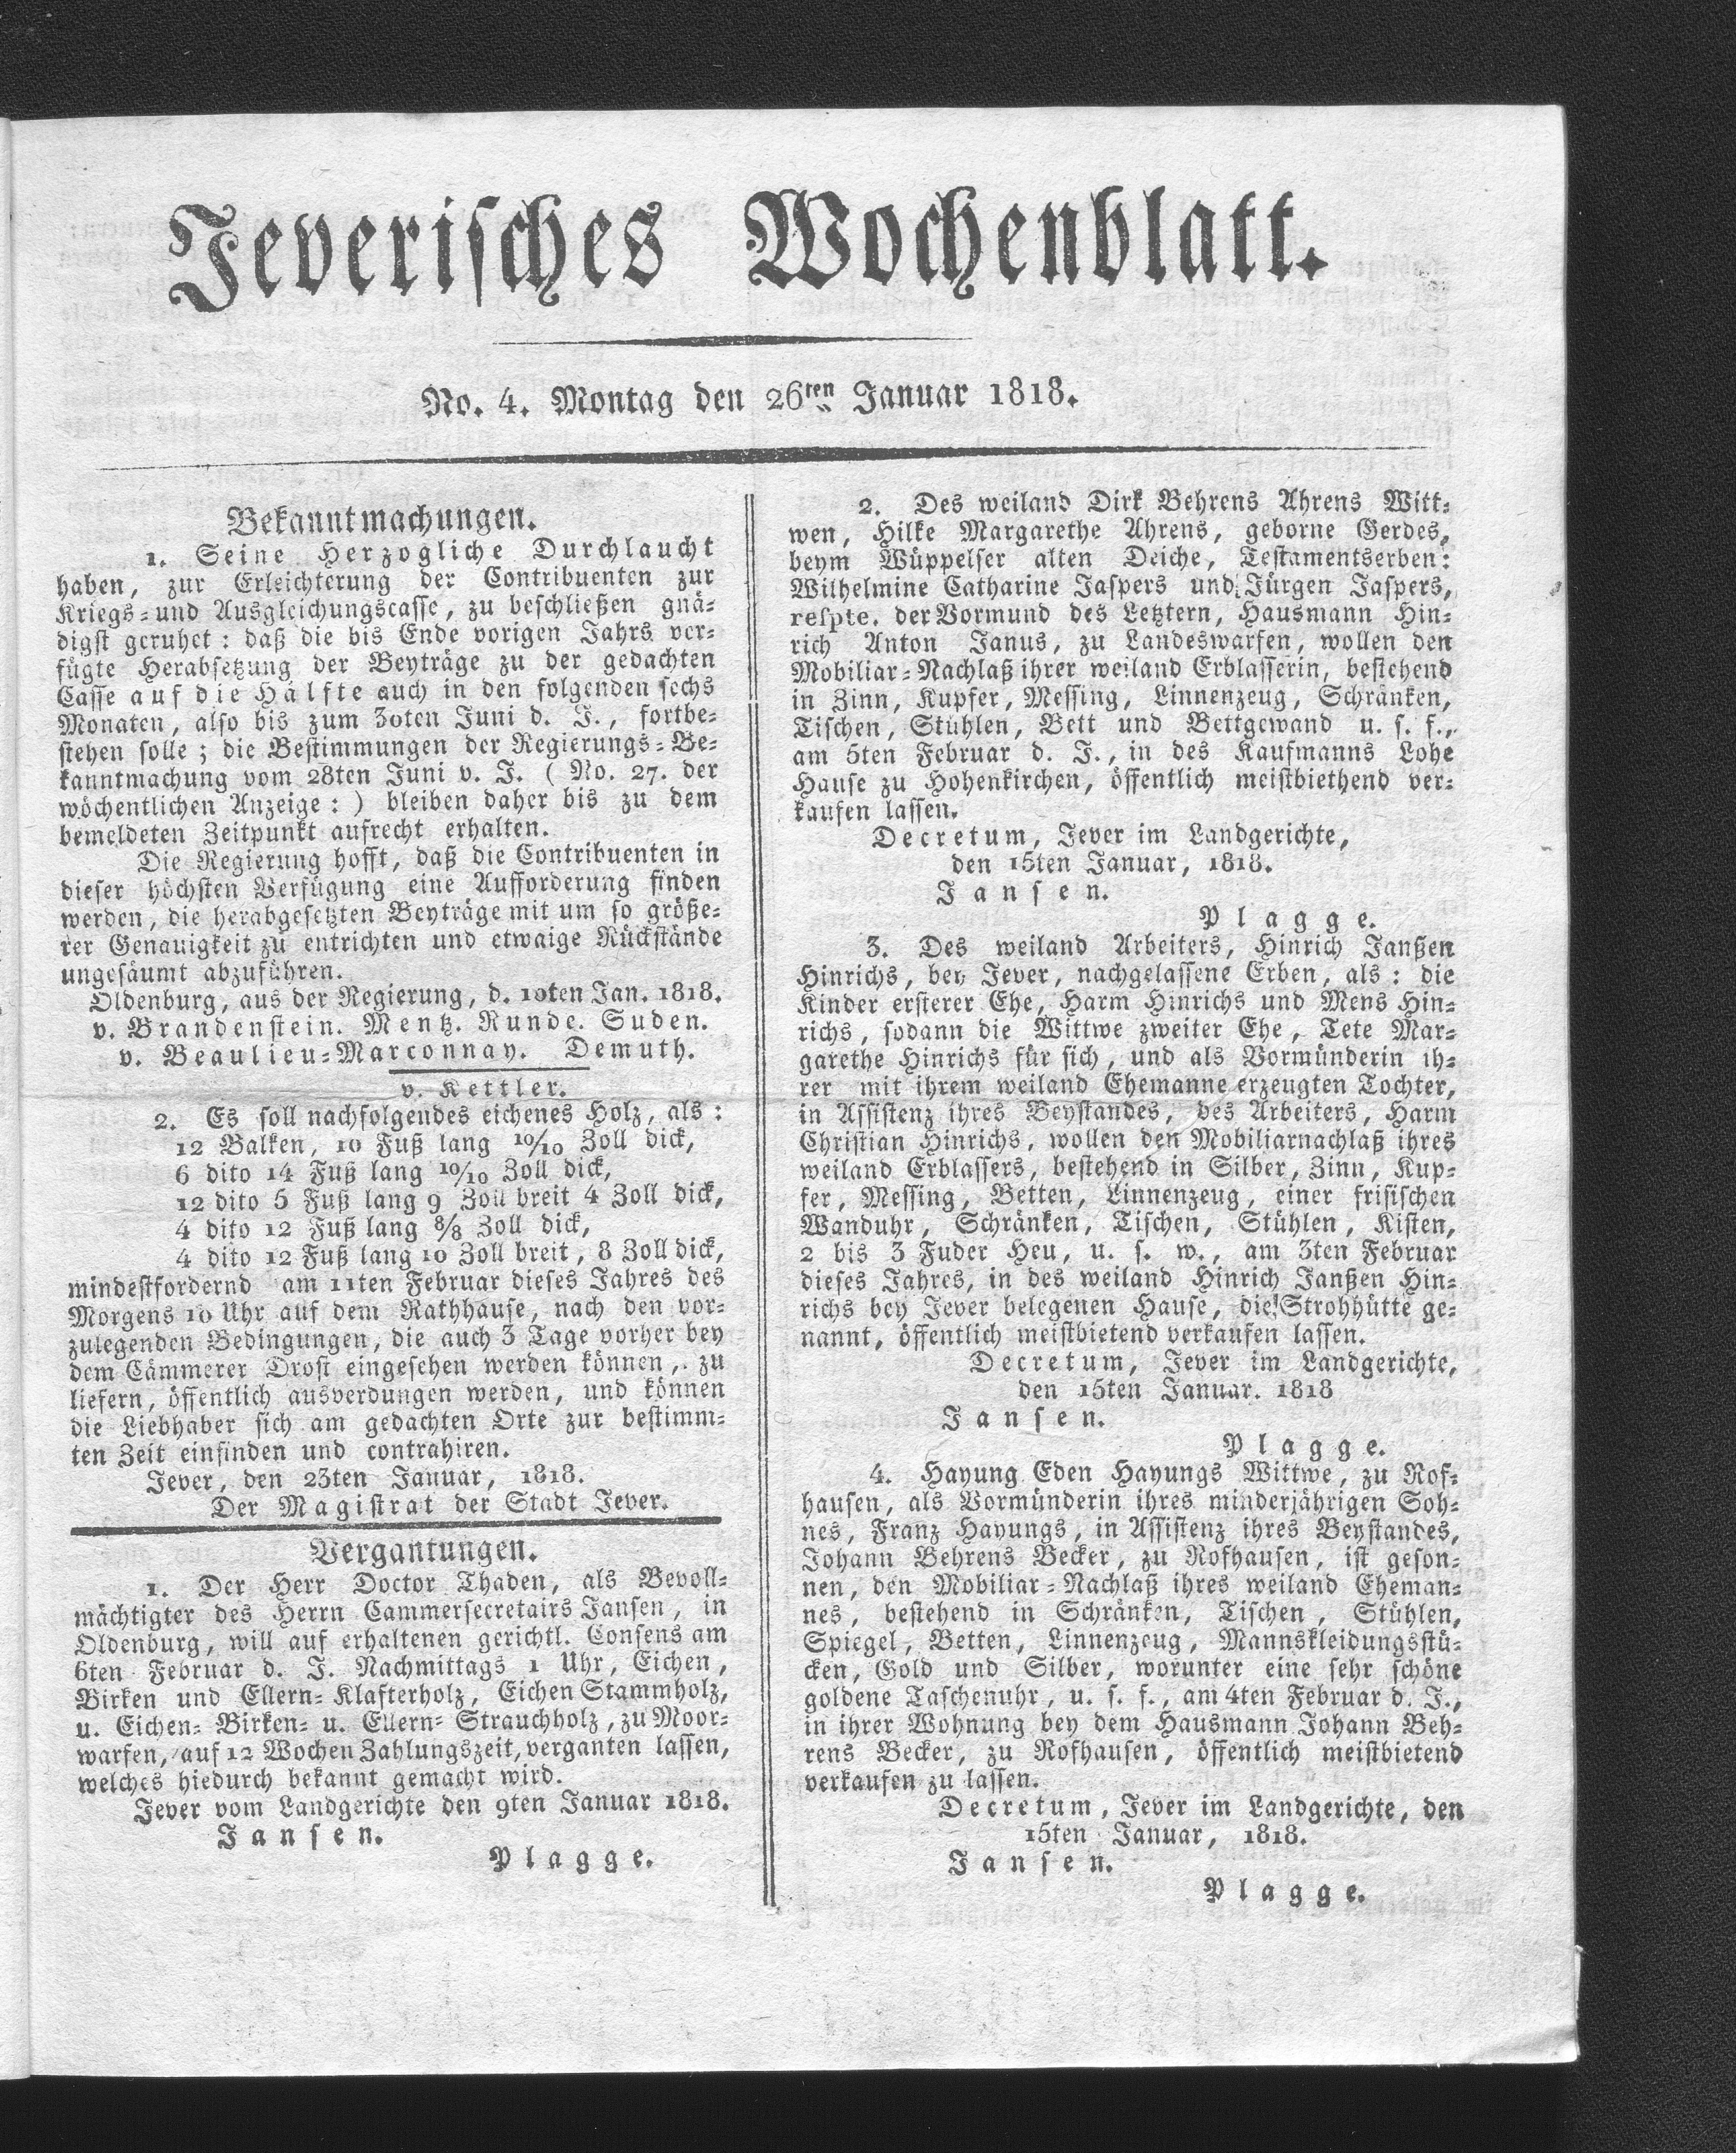 Jeverisches Wochenblatt.
No. 4. Montag den 26ten Januar 1818.
Bekanntmachungen.
1. Seine Herzogliche Durchlaucht
haben, zur Erleichterung der Contribuenten zur
Kriegs- und Ausgleichungscasse, zu beschließen gnä-
digst geruhet: daß die bis Ende vorigen Jahrs ver-
fügte Herabsetzung der Beyträge zu der gedachten
Casse auf die Hälfte auch in den folgenden sechs
Monaten, also bis zum 30ten Juni d. J., fortbe-
stehen solle; die Bestimmungen der Regierungs-Be-
kanntmachung vom 28ten Juni v. J. (No. 27. der
wöchentlichen Anzeige:) bleiben daher bis zu dem
bemeldeten Zeitpunkt aufrecht erhalten.
Die Regierung hofft, daß die Contribuenten in
dieser höchsten Verfügung eine Aufforderung finden
werden, die herabgesetzten Beyträge mit um so größe-
rer Genauigkeit zu entrichten und etwaige Rückstände
ungesäumt abzuführen.
Oldenburg, aus der Regierung, d. 10ten Jan. 1818.
v. Brandenstein. Mentz. Runde. Suden.
v. Beaulieu-Marconnay. Demuth.
v. Kettler.
2. Es soll nachfolgendes eichenes Holz, als:
12 Balken, 10 Fuß lang 10/10 Zoll dick,
6 dito 14 Fuß lang 10/10 Zoll dick,
12 dito 5 Fuß lang 9 Zoll breit 4 Zoll dick,
4 dito 12 Fuß lang 8/8 Zoll dick,
4 dito 12 Fuß lang 10 Zoll breit, 8 Zoll dick,
mindestfordernd am 11ten Februar dieses Jahres des
Morgens 10 Uhr auf dem Rathhause, nach den vor-
zulegenden Bedingungen, die auch 3 Tage vorher bey
dem Cämmerer Drost eingesehen werden können, zu
liefern, öffentlich ausverdungen werden, und können
die Liebhaber sich am gedachten Orte zur bestimm-
ten Zeit einfinden und contrahiren.
Jever, den 23ten Januar, 1818.
Der Magistrat der Stadt Jever.
Vergantungen.
1. Der Herr Doctor Thaden, als Bevoll-
mächtigter des Herrn Cammersecretairs Jansen, in
Oldenburg, will auf erhaltenen gerichtl. Consens am
6ten Februar d. J. Nachmittags 1 Uhr, Eichen,
Birken und Ellern-Klafterholz, Eichen Stammholz,
u. Eichen- Birken- u. Ellern- Strauchholz, zu Moor-
warfen, auf 12 Wochen Zahlungszeit, verganten lassen,
welches hiedurch bekannt gemacht wird.
Jever vom Landgerichte den 9ten Januar 1818.
Jansen.
Plagge.
2. Des weiland Dirk Behrens Ahrens Witt-
wen, Hilke Margarethe Ahrens, geborne Gerdes,
beym Wüppelser alten Deiche, Testamentserben:
Wilhelmine Catharine Jaspers und Jürgen Jaspers,
respte. der Vormund des Letztern, Hausmann Hin-
rich Anton Janus, zu Landeswarfen, wollen den
Mobiliar-Nachlaß ihrer weiland Erblasserin, bestehend
in Zinn, Kupfer, Messing, Linnenzeug, Schränken,
Tischen, Stühlen, Bett und Bettgewand u. s. f.,
am 5ten Februar d. J., in des Kaufmanns Lohe
Hause zu Hohenkirchen, öffentlich meistbiethend ver-
kaufen lassen.
Decretum, Jever im Landgerichte,
den 15ten Januar, 1818.
Jansen.
Plagge.
3. Des weiland Arbeiters, Hinrich Janßen
Hinrichs, bey Jever, nachgelassene Erben, als: die
Kinder ersterer Ehe, Harm Hinrichs und Mens Hin-
richs, sodann die Wittwe zweiter Ehe, Tete Mar-
garethe Hinrichs für sich, und als Vormünderin ih-
rer mit ihrem weiland Ehemanne erzeugten Tochter,
in Assistenz ihres Beystandes, des Arbeiters, Harm
Christian Hinrichs, wollen den Mobiliarnachlaß ihres
weiland Erblassers, bestehend in Silber, Zinn, Kup-
fer, Messing, Betten, Linnenzeug, einer frisischen
Wanduhr, Schränken, Tischen, Stühlen, Kisten,
2 bis 3 Fuder Heu, u. s. w., am 3ten Februar
dieses Jahres, in des weiland Hinrich Janßen Hin-
richs bey Jever belegenen Hause, die Strohhütte ge-
nannt, öffentlich meistbietend verkaufen lassen.
Decretum, Jever im Landgerichte,
den 15ten Januar. 1818
Jansen.
Plagge.
4. Hayung Eden Hayungs Wittwe, zu Rof-
hausen, als Vormünderin ihres minderjährigen Soh-
nes, Franz Hayungs, in Assistenz ihres Beystandes,
Johann Behrens Becker, zu Rofhausen, ist geson-
nen, den Mobiliar-Nachlaß ihres weiland Eheman-
nes, bestehend in Schränken, Tischen, Stühlen,
Spiegel, Betten, Linnenzeug, Mannskleidungsstü-
cken, Gold und Silber, worunter eine sehr schöne
goldene Taschenuhr, u. s. f., am 4ten Februar d. J.,
in ihrer Wohnung bey dem Hausmann Johann Beh-
rens Becker, zu Rofhausen, öffentlich meistbietend
verkaufen zu lassen.
Decretum, Jever im Landgerichte, den
15ten Januar, 1818.
Jansen.
Plagge.